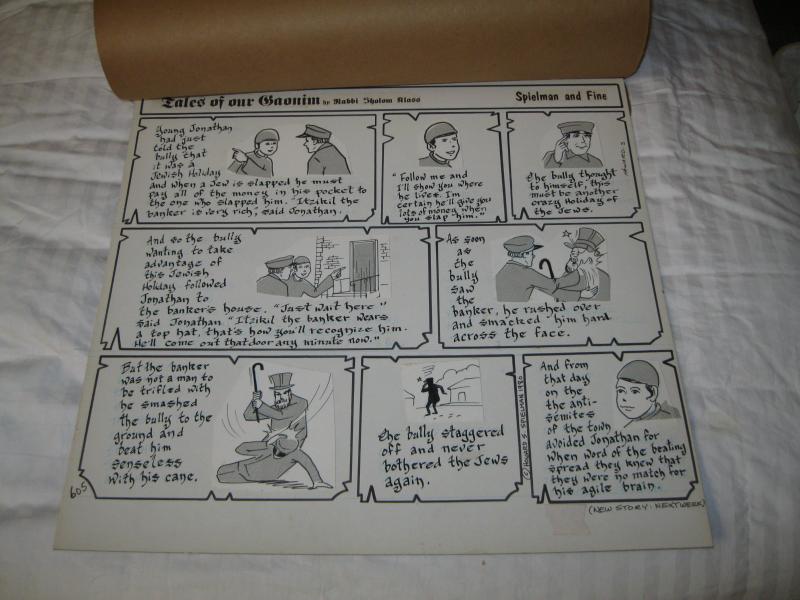 Tales of our Gaonim by Rabbi Sholom Klass
Spielman and Fine
Young Jonathan
had just
told the
bully that
it was a
Jewish Holiday
and when a Jew is slapped he must
pay all of the money in his pocket to
the one who slapped him. "Itzikil the
banker is very rich," said Jonathan.
"Follow me and
I'll show you where
he lives. I'm
certain he'll give you
lots of money when
you slap him."
The bully thought
to himself, this
must be another
crazy Holiday of
the Jews.
And so the bully
wanting to take
advantage of
this Jewish
Holiday followed
Jonathan to
the banker's house. "Just wait here"
said Jonathan "Itzikil the banker wears
a top hat, that's how you'll recognize him.
He'll come out that door any minute now."
As soon
as
the
bully
saw
the
banker, he rushed over
and smacked him hard
across the face.
But the banker
was not a man to
be trifled with
he smashed
the bully to the
ground and
beat him
senseless
with his cane.
The bully staggered
off and never
bothered the Jews
again.
© HOWARD S. SPIELMAN 1980
And from
that day
on the
the anti-
semites
of the town
avoided Jonathan for
when word of the beating
spread they knew that
they were no match for
his agile brain.
605
(NEW STORY: NEXT WEEK)